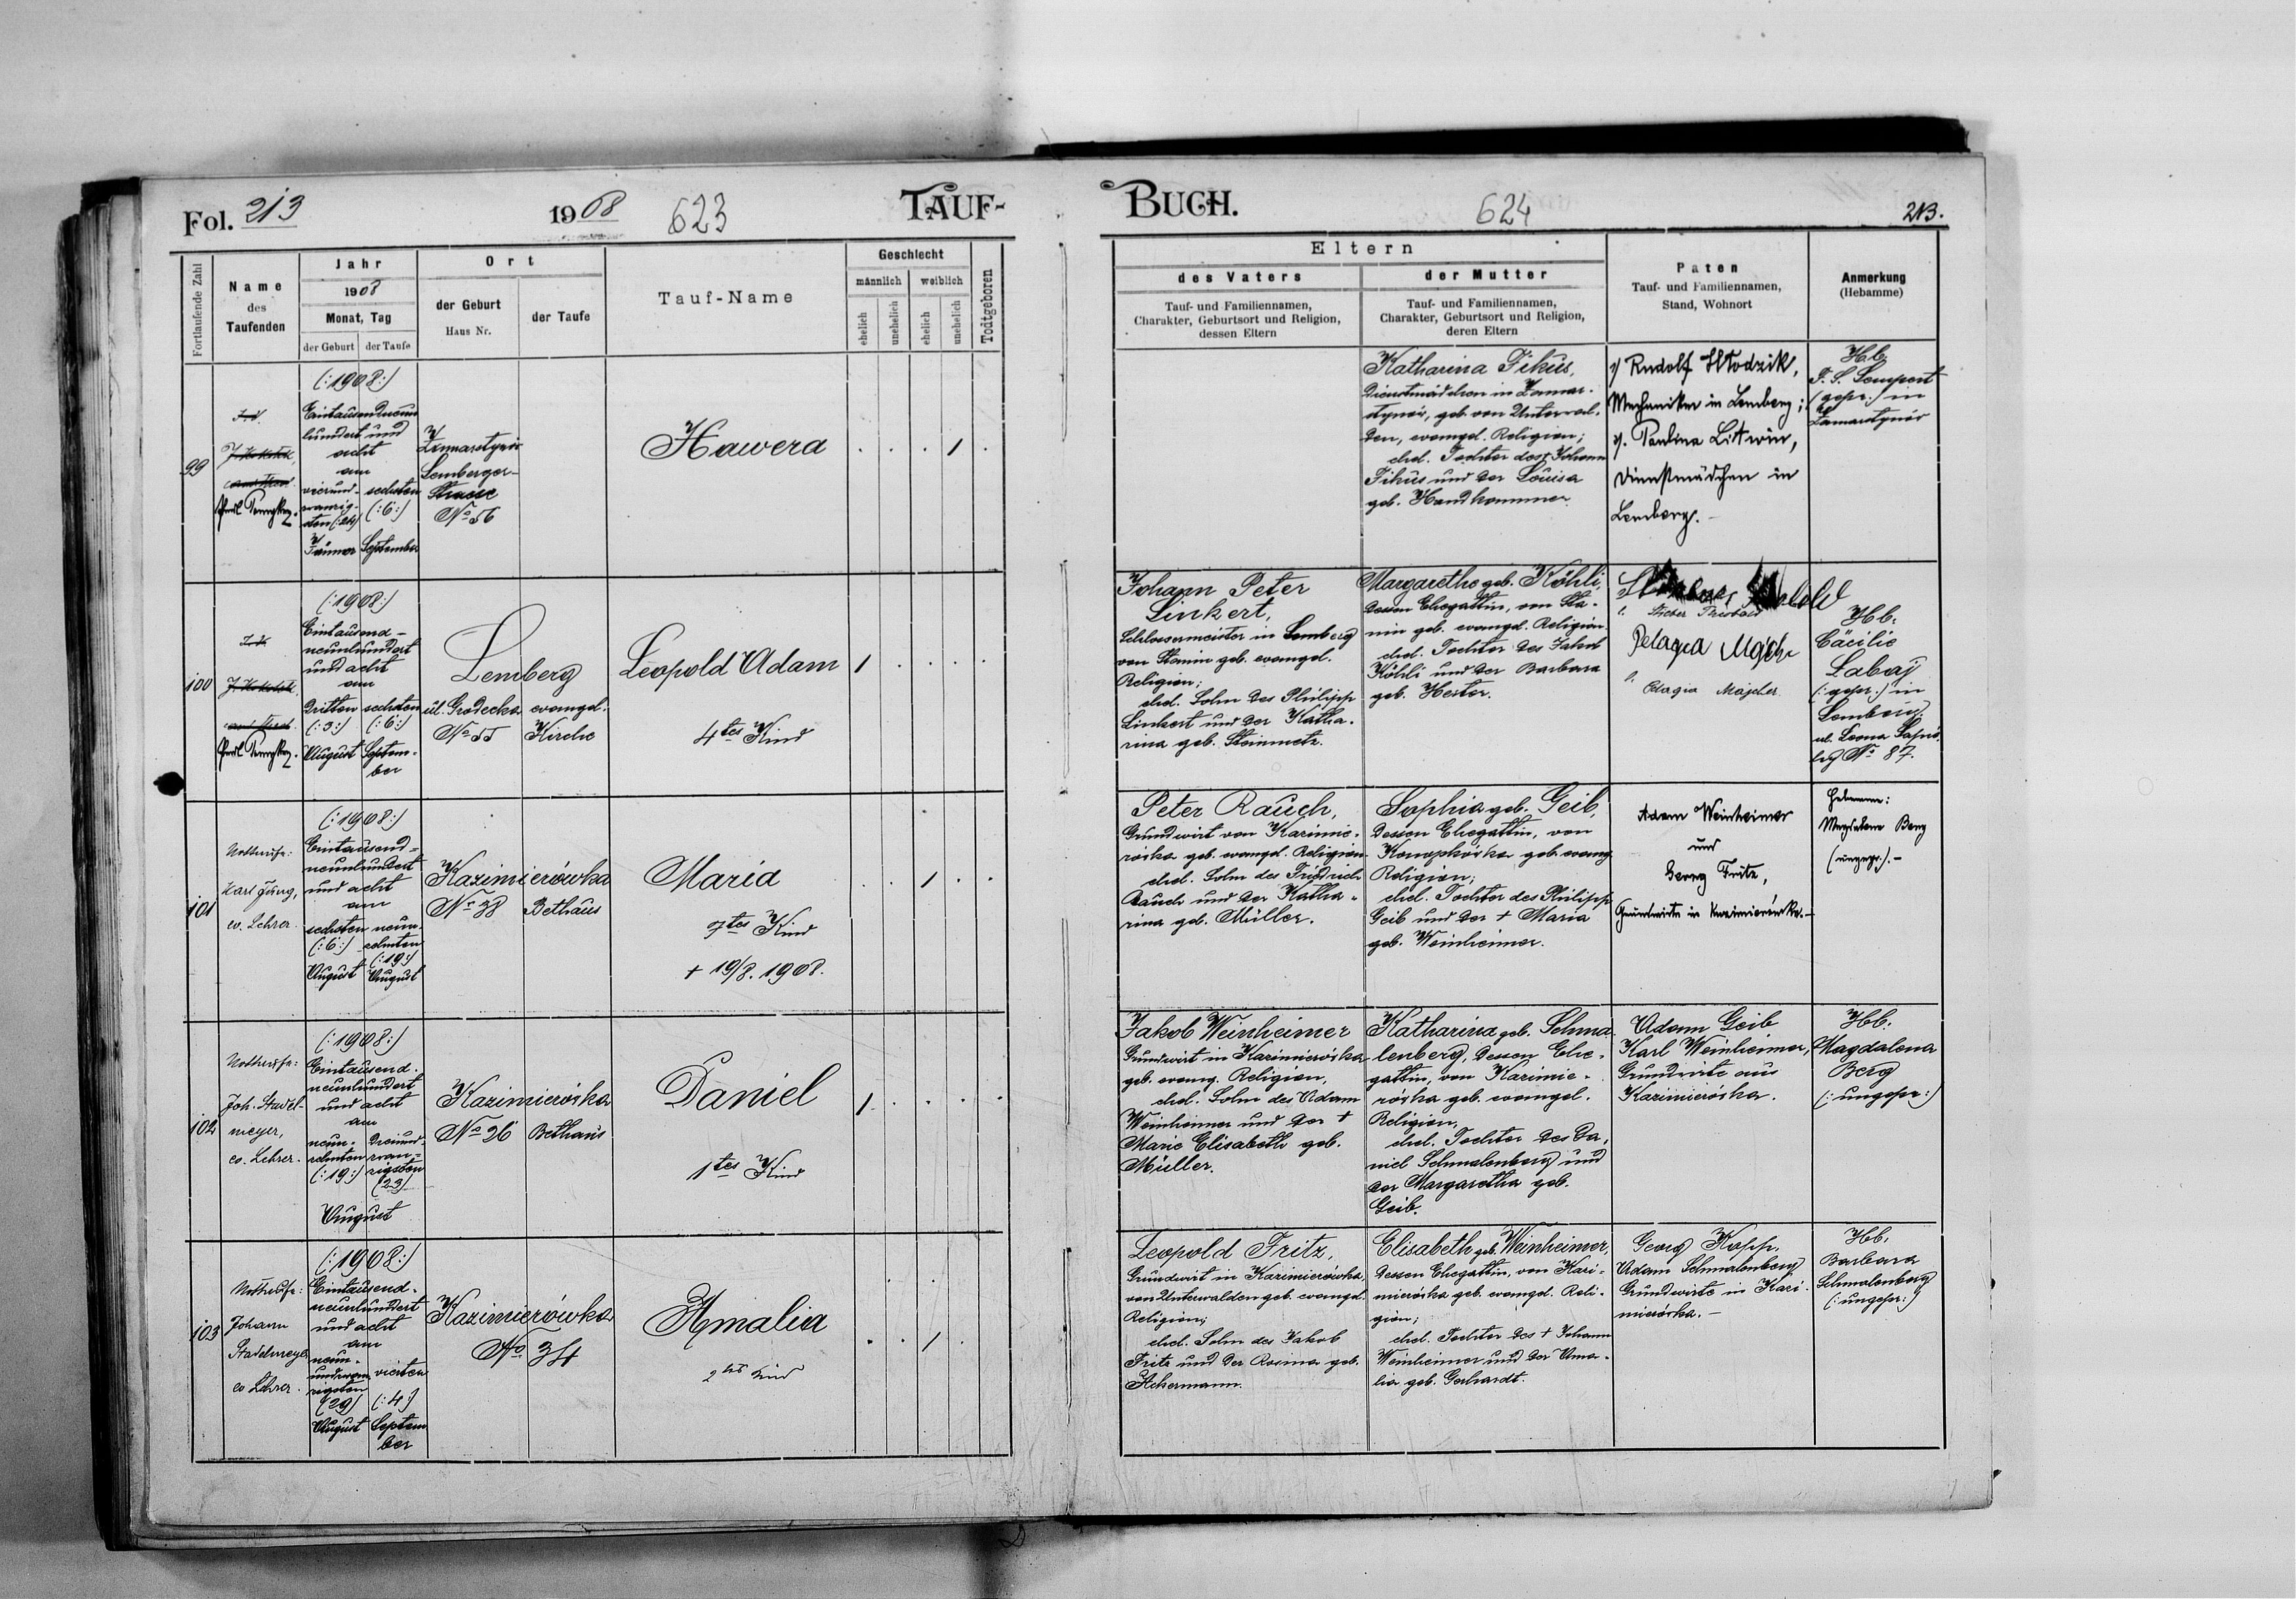 Fol. 213
1908
623
TAUF-
BUCH.
624
213.
Fortlaufende Zahl
Name
des
Taufenden
Jahr
1908
Monat, Tag
der Geburt
der Taufe
Ort
der Geburt
Haus Nr.
der Taufe
Tauf-Name
Geschlecht
männlich
weiblich
ehelich
unehelich
ehelich
unehelich
Todtgeboren
Eltern
des Vaters
Tauf- und Familiennamen,
Charakter, Geburtsort und Religion,
dessen Eltern
der Mutter
Tauf- und Familiennamen,
Charakter, Geburtsort und Religion,
deren Eltern
Paten
Tauf- und Familiennamen,
Stand, Wohnort
Anmerkung
(Hebamme)
99
(:1908:)
Eintausendneun
hundert und
acht
am
vierund-
zwanzig-
sten (:24)
Jänner
sechsten
(:6:)
September
Lemberger-
Strasse
No 56
Hawera
1
Katharina Fikus,
Dienstmädchen in Zamar-
stynów, geb. von Unterwal-
den, evangel. Religion;
ehel. Tochter des + Johann
Fikus und der Louisa
geb. Handkammer.
1) Rudolf
Mechaniker in Lemberg;
2). Paulina Litwin,
Dienstmädchen in
Lemberg.-
Hb.
(gepr.) in
Zamarstynów
100
(:1908:)
Eintausend-
neunhundert
und acht
am
dritten
(:3:)
August
sechsten
(:6:)
Septem-
ber
Lemberg
ul. Grodecka
No 55
evangel.
Kirche
Leopold Adam
4tes Kind
1
Johann Peter
Linkert,
Schlossermeister in Lemberg
von Stanin geb. evangel.
Religion;
ehel. Sohn des Philipp
Linkert und der Katha-
rina geb. Steinmetz.
Margarethe geb. Köhli,
dessen Ehegattin, von Sta-
nin geb. evangel. Religion
ehel. Tochter des Jakob
Köhli und der Barbara
geb. Hester.
Pelagia
Pelagia Majcher
Hb.
Cäcilie
Labaj
(:gepr.:) in
Lemberg
ul. Leona Sapie-
hy No 87.
101
Nottaufe:
Karl Jung,
ev. Lehrer
(:1908:)
Eintausend-
neunhundert
und acht
am
sechsten
(:6:)
August
neun-
zehnten
(:19:)
August
Kazimierówka
No 38
Bethaus
Maria
7tes Kind
+ 19/8. 1908.
1
Peter Rauch,
Grundwirt von Kazimie-
rówka geb. evangel. Religion
ehel. Sohn des Fridrich
Rauch und der Katha-
rina geb. Müller.
Sophia geb. Geib,
dessen Ehegattin, von
Konopkówka geb. evang.
Religion;
ehel. Tochter des Philipp
Geib und der + Maria
geb. Weinheimer.
Adam Weinheimer
und
Georg Fritz,
Grundwirte in Kazimierówka.-
Hebamme:
Magdalena Berg
(ungepr.).-
102
Nottaufe:
Joh. Stadel-
meyer,
ev. Lehrer.
(:1908:)
Eintausend-
neunhundert
und acht
am
neun-
zehnten
(:19:)
dreiund-
zwan-
zigsten
(23)
August
Kazimierówka
No 26
Bethaus
Daniel
1tes Kind
1
Jakob Weinheimer
Grundwirt in Kazimierówka
geb. evang. Religion,
ehel. Sohn des Adam
Weinheimer und der +
Marie Elisabeth geb.
Müller.
Katharina geb. Schma-
lenberg, dessen Ehe-
gattin, von Kazimie-
rówka geb. evangel.
Religion,
ehel. Tochter des Da-
niel Schmalenberg und
der Margaretha geb.
Geib.
Adam Geib
Karl Weinheimer,
Grundwirte aus
Kazimierówka.
Hb.
Magdalena
Berg
(:ungepr:)
103
Nottaufe:
Johann
Stadelmeyer
ev Lehrer.
(:1908:)
Eintausend-
neunhundert
und acht
am
neun-
undzwan-
zigsten
(29)
August
vierten
(:4:)
Septem
ber
Kazimierówka
No 34
Amalia
2tes Kind
1
Leopold Fritz,
Grundwirt in Kazimierówka,
von Unterwalden geb. evangel.
Religion;
ehel. Sohn des Jakob
Fritz und der Rosina geb.
Ackermann.
Elisabeth geb. Weinheimer,
dessen Ehegattin, von Kazi-
mierówka geb. evangel. Reli-
gion;
ehel. Tochter des + Johann
Weinheimer und der Ama-
lia geb. Gerhardt.
Georg Kopp,
Adam Schmalenberg
Grundwirte in Kazi-
mierówka.-
Hb.
Barbara
Schmalenberg
(:ungepr:)